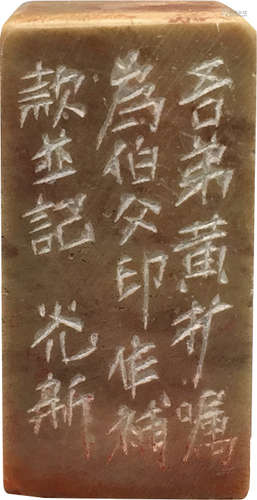 吾弟黄朴嘱
為伯父印作補
款並記 光新